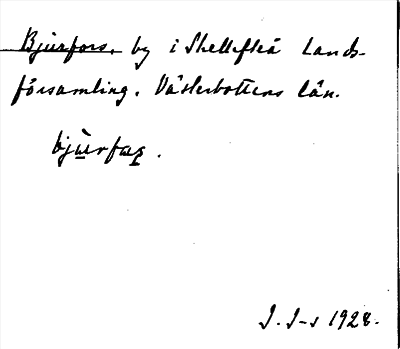 Bjurfors, by i Skellefteå lands-
församling. Västerbottens län.
bjùrfaʂ.
J. J-s 1928.